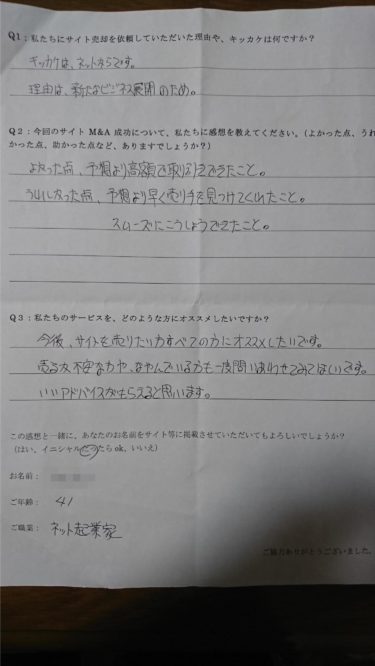 Q1：私たちにサイト売却を依頼していただいた理由や、キッカケは何ですか？
キッカケは、ネットからです。
理由は、新たなビジネス展開のため。
Q2：今回のサイト M&A 成功について、私たちに感想を教えてください。（よかった点、うれし
かった点、助かった点など、ありますでしょうか？）
よかった点、予想より高額で取り引きできたこと。
うれしかった点、予想より早く売り手を見つけてくれたこと。
スムーズにこうしょうできたこと。
Q3：私たちのサービスを、どのような方にオススメしたいですか？
今後、サイトを売りたい方すべての方にオススメしたいです。
売る方不安な方や、なやんでいる方も一度問い合わせてみてほしいです。
いいアドバイスがもらえると思います。
この感想と一緒に、あなたのお名前をサイト等に掲載させていただいてもよろしいでしょうか？
（はい、イニシャルだったら ok、いいえ）
お名前：
ご年齢： 41
ご職業： ネット起業家
ご協力ありがとうございました。